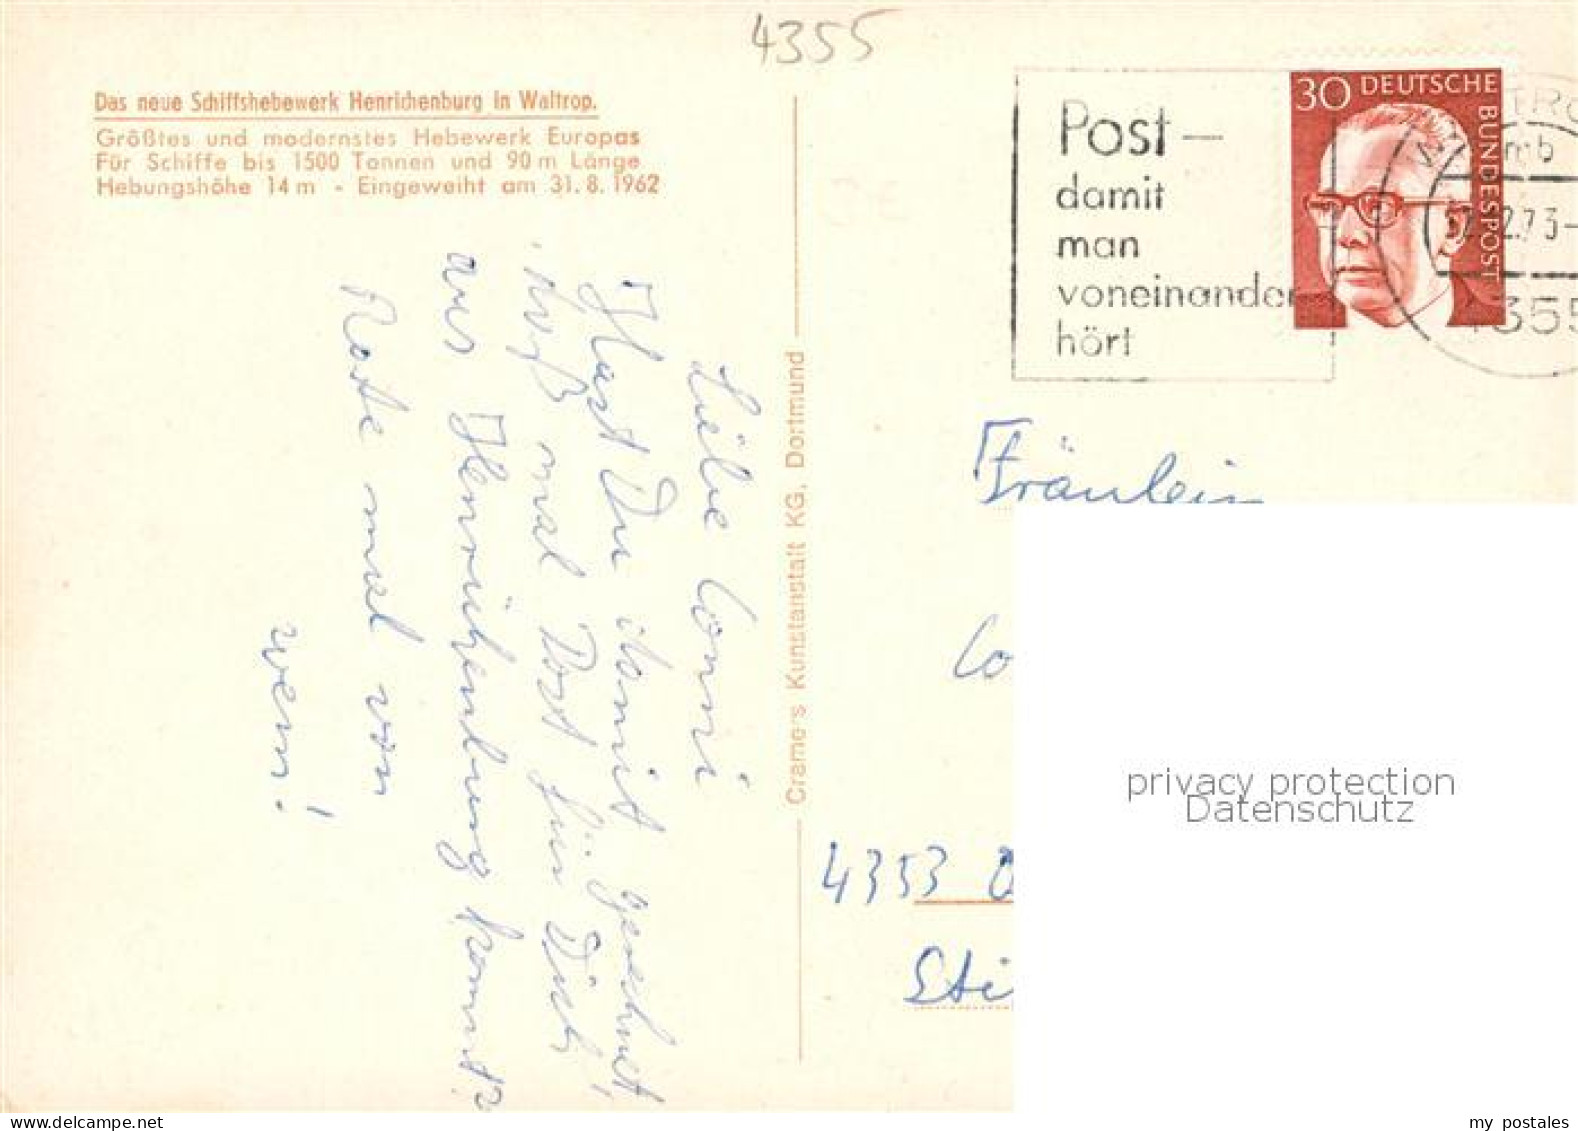 4355
Das neue Schiffshebewerk Henrichenburg in Waltrop.
Größtes und modernstes Hebewerk Europas
Für Schiffe bis 1500 Tonnen und 90 m Länge
Hebungshöhe 14 m - Eingeweiht am 31. 8. 1962
Liebe Conni
Hast Du damit gerechnet
daß mal Post für Dich,
aus Henrichenburg kommt?
Rate mal von
wem!
Cramers Kunstanstalt KG, Dortmund
Post –
damit
man
voneinander
hört
30 DEUTSCHE
BUNDESPOST
mb
4355
Fräulein
Co
4353
privacy protection
Datenschutz
my postales